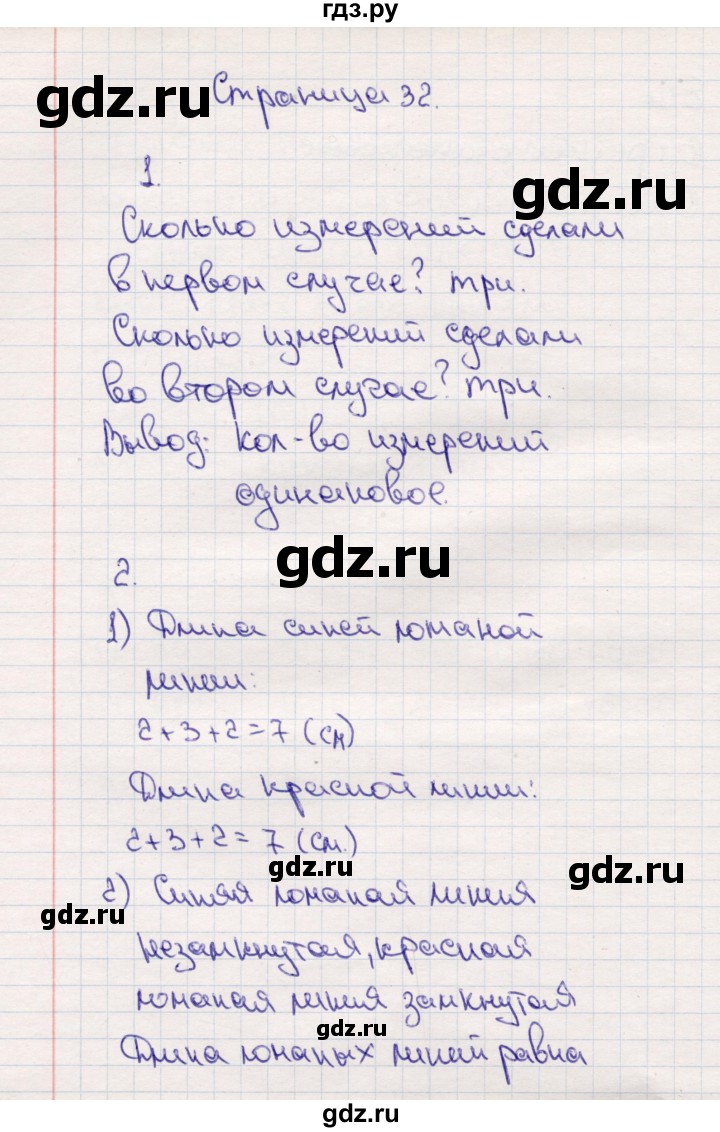 гдз.ру
gdz.ru
Страница 32.
1.
gdz.ru
Сколько измерений сделали
в первом случае? три.
Сколько измерений сделали
во втором случае? три.
Вывод: кол-во измерений
одинаковое.
gdz.ru
2.
1) Длина синей ломаной
линии:
2+3+2=7 (см)
Длина красной линии:
2+3+2=7 (см.)
gdz.ru
gdz.ru
2) Синяя ломаная линия
gdz.ru
незамкнутая, красная
ломаная линия замкнутая
gdz.ru
Длина ломаных линий равна
gdz.ru